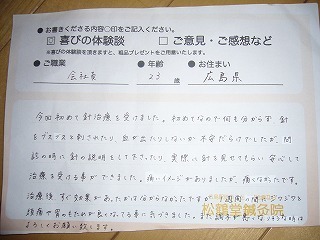 ●お書きくださる内容に○印をご記入ください。
☒ 喜びの体験談　□ ご意見・ご感想など
※喜びの体験談を頂きますと、粗品プレゼントをご用意いたします。
●ご職業　●年齢　●お住まい
会社員　23歳　広島県
今回初めて針治療を受けました。初めてなので何も分からず 針
をブスブスと刺されたり、血が出たりしないか不安だらけでしたが、問
診の時に針の説明をして下さったり、実際に針を見せてもらい安心して
治療を受ける事ができました。痛いイメージがありましたが、痛くなかったです。
治療後、すぐ効果があったかは分からなかったですが、1週間の間
頭痛や肩のこりが良くなってる事に気づきました。また調子が悪くなりそうな時は
よろしくお願い致します。
松鶴堂鍼灸院